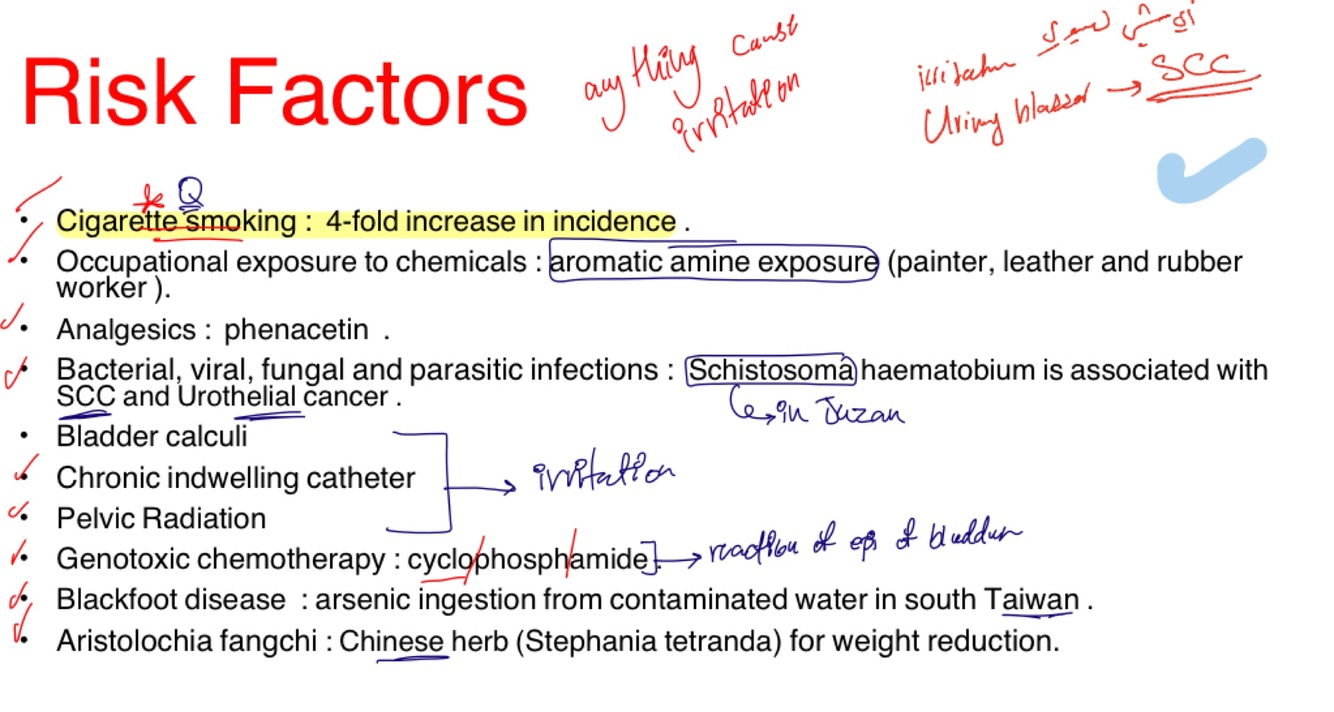 Risk Factors
any thing cause
irritation
irritation
Uriny bladder → SCC
* Q
• Cigarette smoking : 4-fold increase in incidence .
• Occupational exposure to chemicals : aromatic amine exposure (painter, leather and rubber
worker ).
• Analgesics : phenacetin .
• Bacterial, viral, fungal and parasitic infections : Schistosoma haematobium is associated with
SCC and Urothelial cancer .
→ in Juzan
• Bladder calculi
• Chronic indwelling catheter
→ irritation
• Pelvic Radiation
• Genotoxic chemotherapy : cyclophosphamide. → reaction of epi of bladder
• Blackfoot disease : arsenic ingestion from contaminated water in south Taiwan .
• Aristolochia fangchi : Chinese herb (Stephania tetranda) for weight reduction.